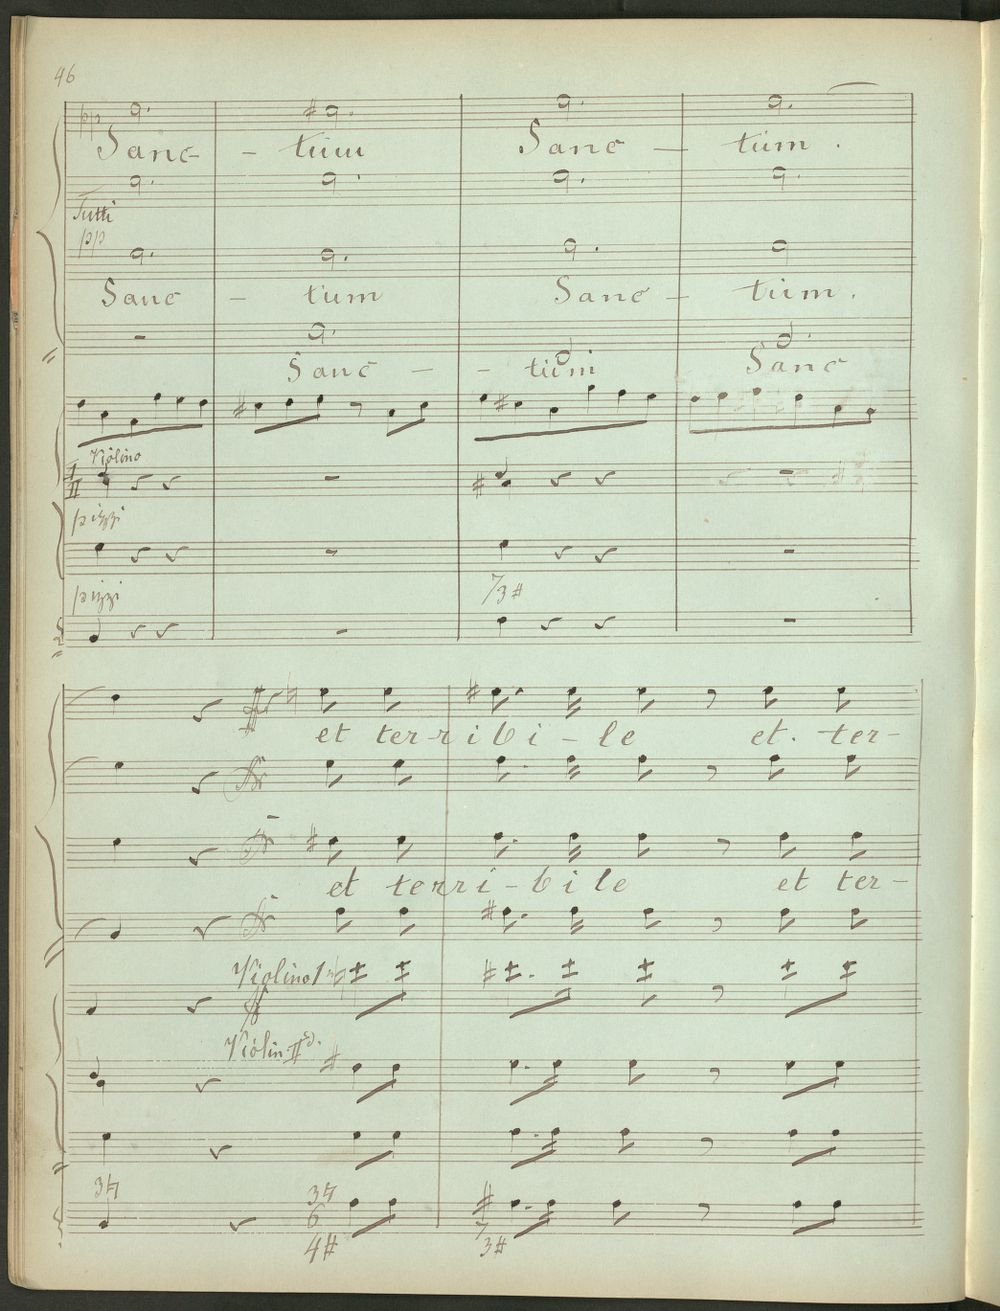 46
pp
Sanc- - tum Sanc - tum.
Tutti
pp
Sanc - tum Sanc - tum.
Sanc - - tum Sanc
Violino
I
II
pizzi
pizzi
7
3#
et ter-ribi-le et. ter-
et terri-bile et ter-
Violino 1
ff
Violin. IId.
3♮ 3♮
6 7
4# 3#